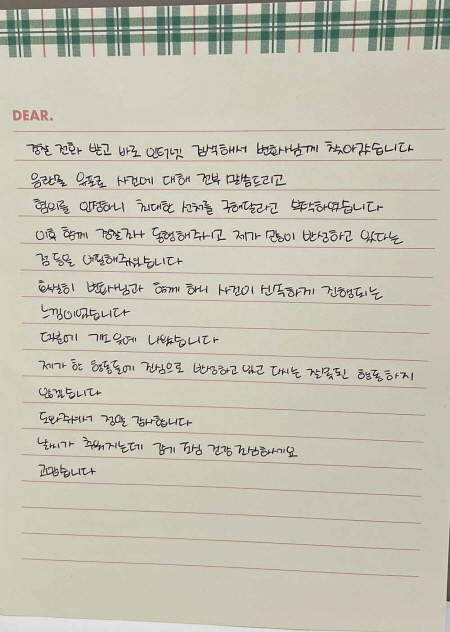 DEAR.
경찰 전화 받고 바로 인터넷 검색해서 변호사님께 찾아갔습니다
음란물 유포로 사건에 대해 전부 말씀드리고
혐의를 인정하니 최대한 선처를 구해달라고 부탁하였습니다
이후 함께 경찰조사 동행해주시고 제가 많이 반성하고 있다는
점 등을 어필해주셨습니다
확실히 변호사님과 함께 하니 사건이 신속하게 진행되는
느낌이었습니다
더불어 기소유예 나왔습니다
제가 한 행동들에 진심으로 반성하고 있고 다시는 잘못된 행동하지
않겠습니다
도와줘서 정말 감사합니다
날씨가 추워지는데 감기 조심 건강 조심하세요
고맙습니다